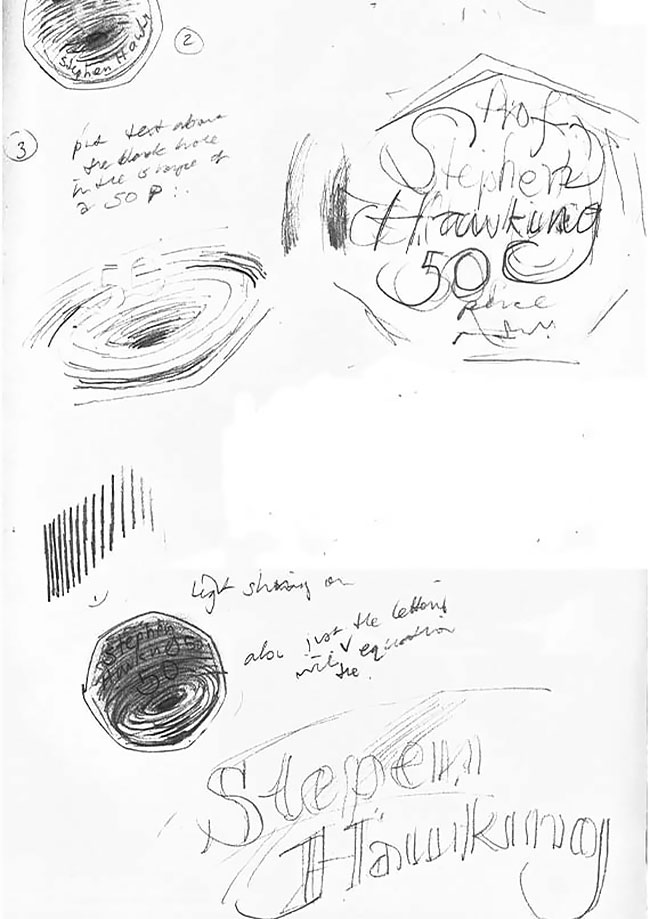 Stephen Hawk
2
3
put text above
the black hole
in the shape of
a 50 P
Prof
Stephen
Hawking
50
place
50
light shining on
Stephen
Hawking
50
also just the lettering
with equation
the.
Stephen
Hawking